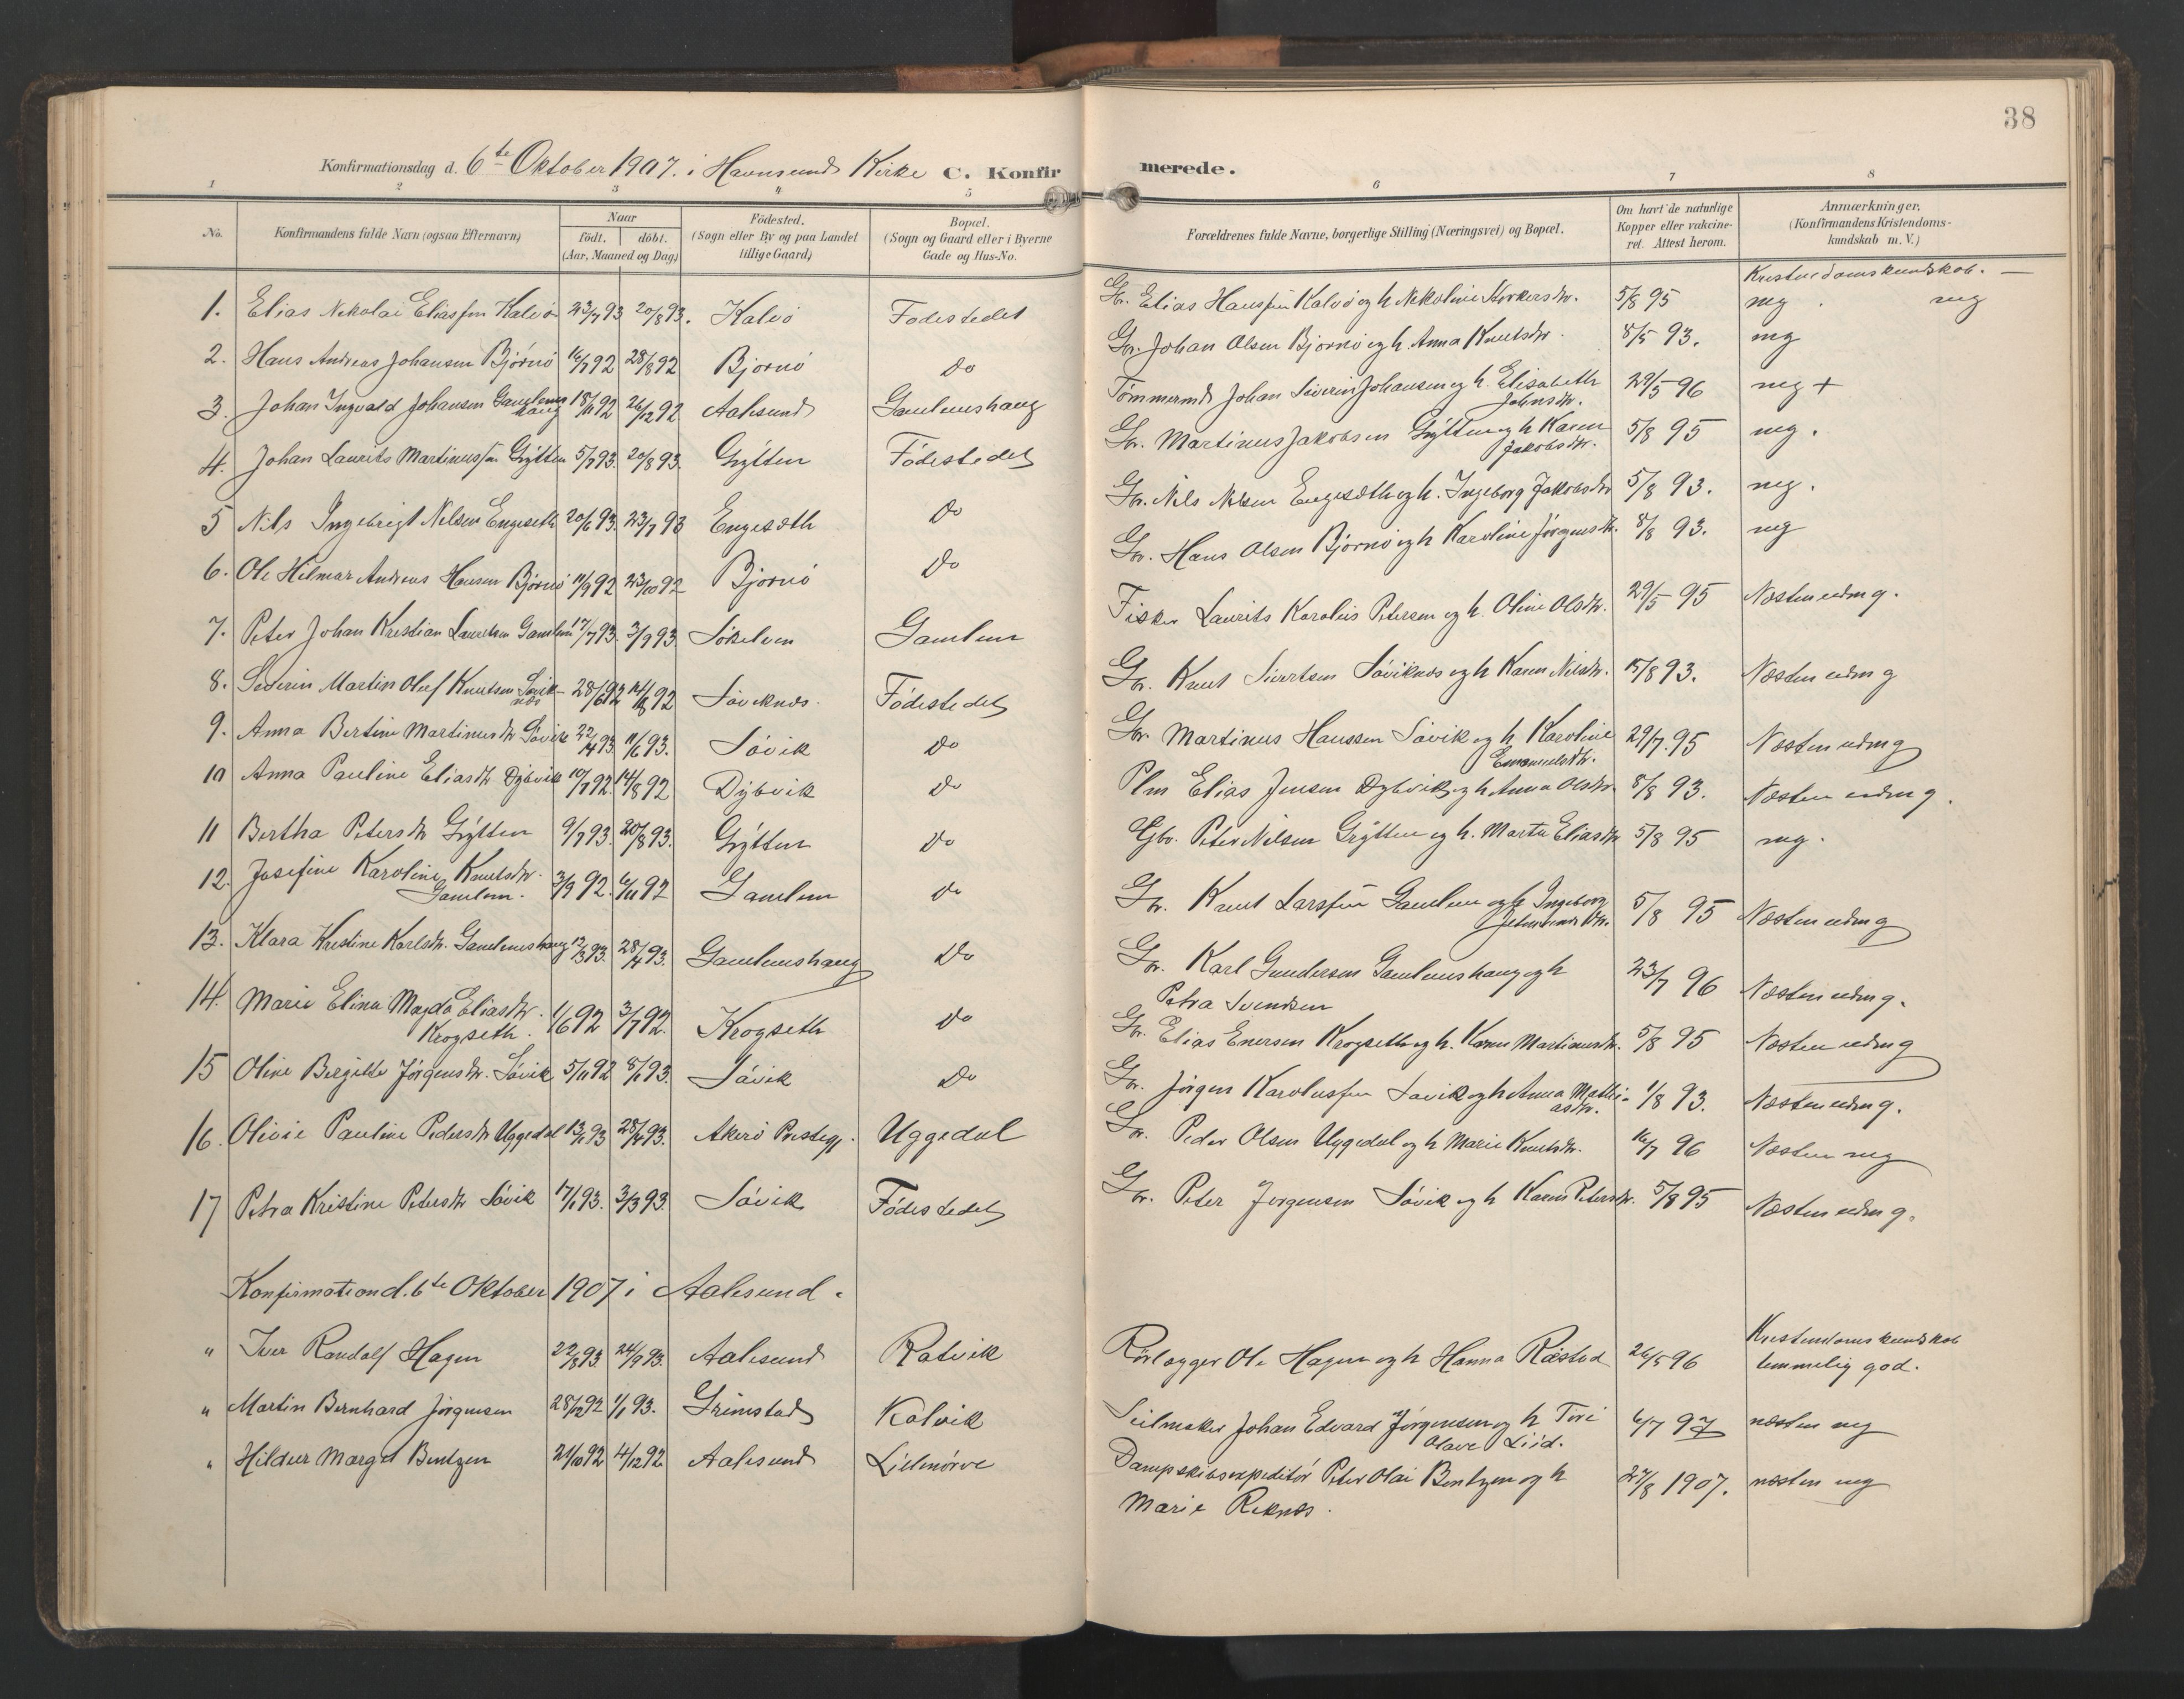 38
Konfirmationsdag d. 6te Oktober 1907. i Havnsund Kirke C. Konfirmerede.
1 2 3 4 5 6 7 8
No. Konfirmandens fulde Navn (ogsaa Efternavn) Naar födt. döbt. (Aar, Maaned og Dag) Födested. (Sogn eller By og paa Landet tillige Gaard) Bopæl. (Sogn og Gaard eller i Byerne Gade og Hus-No. Forældrenes fulde Navne, borgerlige Stilling (Næringsvei) og Bopæl. Om havt de naturlige Kopper eller vakcineret. Attest herom. Anmærkninger. (Konfirmandens Kristendomskundskab m. V.)
Kristendomskundskab. —
1. Elias Nikolai Eliassen Kalvö 23/7 93 20/8 93. Kalvö Fødestedet Gbr. Elias Hanssen Kalvö og h Nikoline 5/8 95 mg . mg
2. Hans Andreas Johansen Bjørnö 16/7 92 28/8 92 Bjornö Do Gbr. Johan Olsen Bjornö og h. Anna Knutsdtr. 8/5 93. mg
3. Johan Ingvald Johansen Gamlemshaug 18/11 92 26/12 92 Aalesund Gamlemshaug Tömmermd Johan Severin Johansen og h. Elisabeth Johnsdtr. 29/5 96 mg +
4. Johan Laurits Martinussen Grÿtten 5/7 93. 20/8 93. Grÿtten Födestedet Gbr. Martinus Jakobsen Grÿtten og h Karen Jakobsdtr. 5/8 95 mg.
5 Nils Ingebrigt Nilsen Engeseth 20/6 93. 23/7 93 Engesæth Do Gbr. Nils Nilsen Engesæth og h. Ingeborg Jakobsdtr 5/8 93. mg.
6. Ole Hilmar Andreas Hansen Bjørnö 11/9 92 23/10 92 Bjornö Do Gbr. Hans Olsen Bjornö og h Karoline Jörgensdtr. 8/8 93. mg
7. Peter Johan Kristian Lauritsen Gamlem 17/7 93. 3/9 93 Sökelven Gamlem Fisker Laurits Karolius Petersen og h. Oline Olsdtr. 29/5 95 Næsten udm g.
8. Severin Martin Oluf Knutsen Söviknæs 28/6 92 14/8 92 Söviknæs. Födestedet Gbr. Knut Sivertsen Söviknæs og h Karen Nilsdtr. 15/8 93. Næsten udm g
9. Anna Bertine Martinusdtr Sövik 22/4 93 11/6 93. Sövik Do Gbr Martinus Hanssen Sövik og h Karoline Emanuelsdtr. 29/7. 95 Næsten udm g
10 Anna Pauline Eliasdtr. Dybvik 10/7 92 14/8 92 Dÿbvik Do Plm Elias Jensen Dybvik og h Anna Olsdtr. 8/8 93. Næsten udm g.
11 Bertha Petersdtr Grÿtten 9/7 93. 20/8 93. Grÿtten Do Gbr. Peter Nilsen Grÿtten og h. Marte Eliasdtr 5/8 95 mg.
12. Josefine Karoline Knutsdtr. Gamlem. 3/9 92. 6/11 92 Gamlem Do Gbr. Knut Larssen Gamlem og h Ingeborg 5/8 95 Næsten udm g
13. Klara Kristine Karlsdtr. Gamlemshaug 12/3 93. 28/4 93. Gamlemshaug Do Gbr. Karl Gundersen Gamlemshaug og h Petra Svendsen 23/7 96 Næsten udm g.
14. Marie Elina Magda Eliasdtr. Krogseth. 1/6 92 3/7 92. Krogseth Do Gbr. Elias Enersen Krogseth og h. Karen Martinusdtr. 5/8 95 Næsten udm g
15 Oline Bergitte Jörgensdtr. Sövik 5/11 92 8/1 93. Sövik Do Gbr. Jörgen Karolussen Sövik og h Anna Mathiasdtr. 1/8 93. Næsten udm g.
16. Olivie Pauline Pedersdtr Uggedal 13/1 93 28/4 93. Akerö Prestegj. Uggedal Gbr. Peder Olsen Uggedal og h Marie Knutsdtr. 16/7 96 Næsten mg
17 Petra Kristine Petersdtr Sövik 17/1 93. 3/3 93. Sövik Födestedet Gbr. Peter Jörgensen Sövik og h Karen Petersdtr. 5/8 95 Næsten udm g.
Konfirmation d. 6te Oktober 1907 i Aalesund.
" Iver Randolf Hagen 22/8 93 24/9 93. Aalesund Ratvik Rörlægger Ole Hagen og h Hanna Ræstad 26/5 96 Kristendomskundskab temmelig god.
" Martin Bernhard Jörgensen 28/12 92 1/1 93. Grimstad Kalvik Seilmaker Johan Edvard Jörgensen og h Tori Olave Liid. 6/7 97 næsten mg
" Hildur Margit Bentzen 21/10 92 4/12 92 Aalesund Lillemörve Dampskibsexpeditör Peter Olai Bentzen og h Marie Reknæs. 27/8 1907. næsten mg